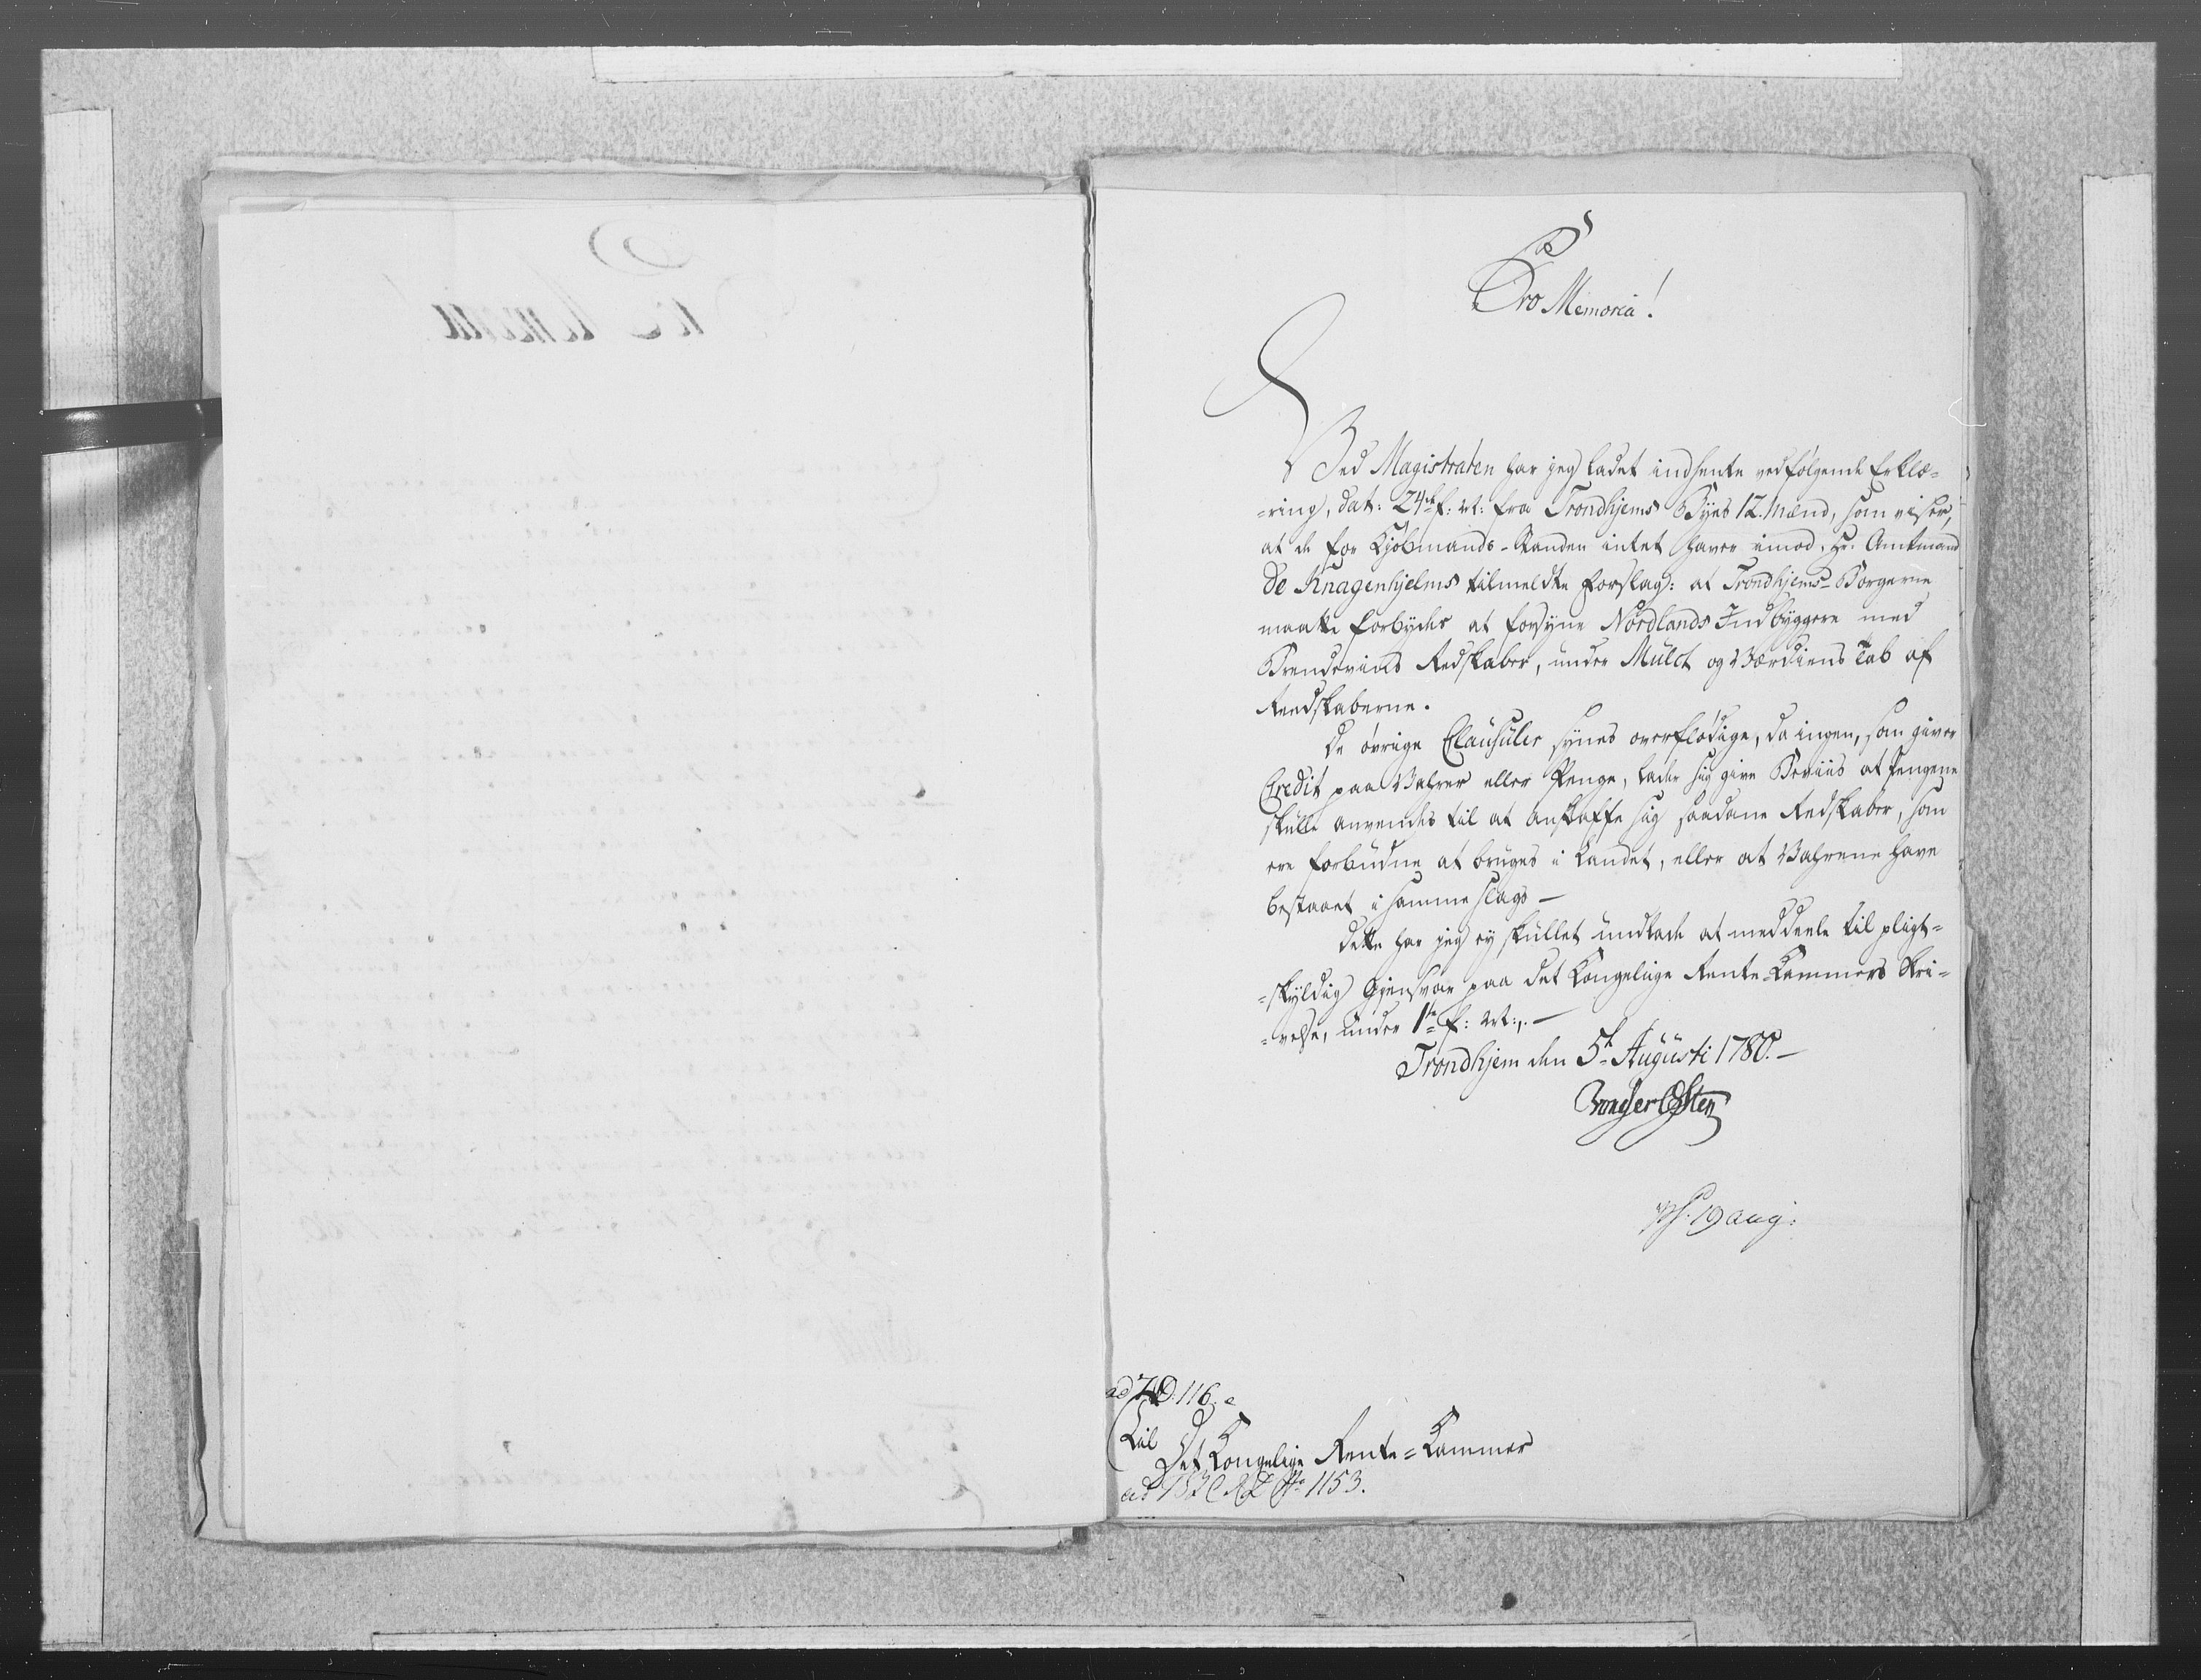 Pro Memoria!
Ved Magistraten har jeg ladet indhente vedfølgende Erklæ-
-ring, dat: 24de f: M: fra Trondhjems Byes 12. Mænd, som viser,
at de for Kjøbmands-Standen intet haver imod, Hr. Amtmand
De Knagenhjelms tilmeldte Forslag: at Trondhjems-Borgerne
maatte forbydes at forsyne Nordlands Indbyggere med
Brendeviins Redskaber, under Mulct og Værdiens Tab af
Reedskaberne.
De øvrige Clausuler synes overflødige, da ingen, som giver
Credit paa Vahrer eller Penge, lader sig give Beviis at Pengene
skulle anvendes til at anskaffe sig saadane Redskaber, som
ere forbudne at bruges i Landet, eller at Vahrene have
bestaaet i samme slags -
Dette har jeg ey skullet undlade at meddeele til pligt-
-skyldig Gjensvar paa det Kongelige Rente-Kammers Skri-
-velse, under 1te f: M:. -
Trondhjem den 5te Augusti 1780. -
Von der Osten
19 aug:
ad 116.
Til
Det Kongelige Rente-Kammer
ad No 1153.